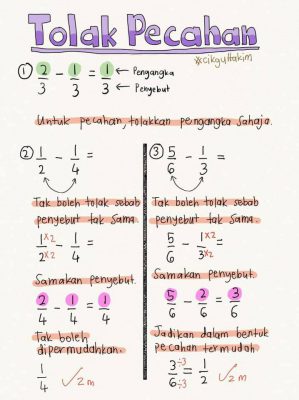 Tolak Pecahan
*cikguHakim
① 2/3 - 1/3 = 1/3 ← Pengangka
← Penyebut
Untuk pecahan, tolakkan pengangka sahaja.
② 1/2 - 1/4 =
Tak boleh tolak sebab
penyebut tak sama.
1×2/2×2 - 1/4 =
Samakan penyebut.
2/4 - 1/4 = 1/4
Tak boleh
dipermudahkan.
1/4 ✓2m
③ 5/6 - 1/3 =
Tak boleh tolak sebab
penyebut tak sama.
5/6 - 1×2/3×2 =
Samakan penyebut.
5/6 - 2/6 = 3/6
Jadikan dalam bentuk
pecahan termudah
3÷3/6÷3 = 1/2 ✓2m